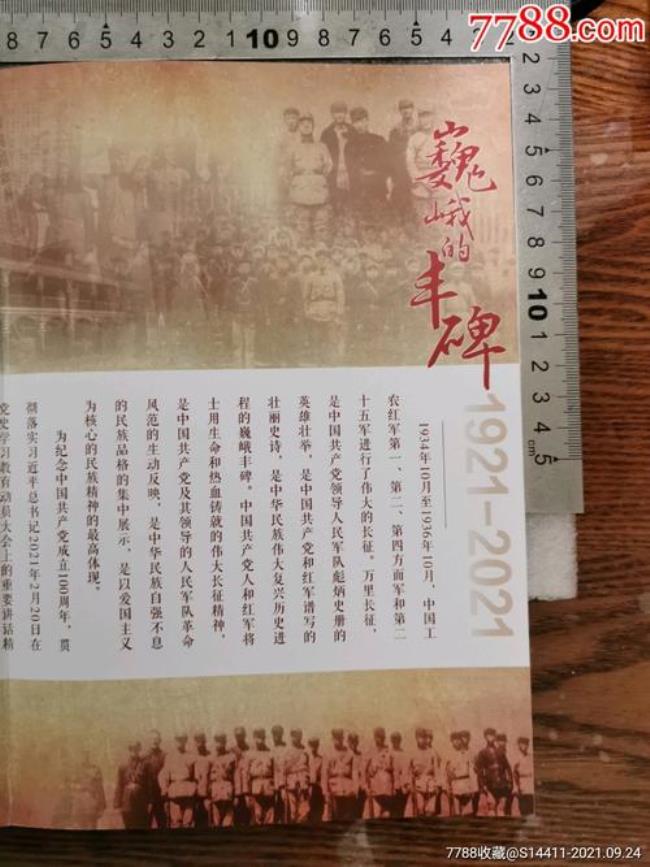 7788.com
巍峨的丰碑
1921-2021
1934年10月至1936年10月，中国工
农红军第一、第二、第四方面军和第二
十五军进行了伟大的长征。万里长征，
是中国共产党领导人民军队彪炳史册的
英雄壮举，是中国共产党和红军谱写的
壮丽史诗，是中华民族伟大复兴历史进
程的巍峨丰碑。中国共产党人和红军将
士用生命和热血铸就的伟大长征精神，
是中国共产党及其领导的人民军队革命
风范的生动反映，是中华民族自强不息
的民族品格的集中展示，是以爱国主义
为核心的民族精神的最高体现。
为纪念中国共产党成立100周年，贯
彻落实习近平总书记2021年2月20日在
党史学习教育动员大会上的重要讲话精
8 7 6 5 4 3 2 1 10 9 8 7 6 5 4 3 2
2 3 4 5 6 7 8 9 10 1 2 3 4 5
cm
7788收藏@S14411-2021.09.24